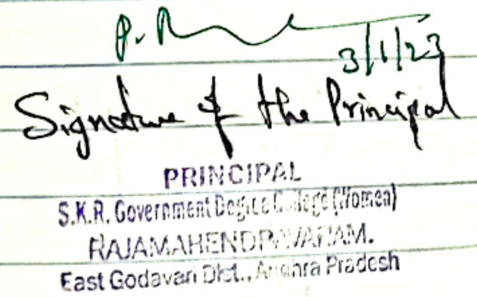 P. R
3/1/23
Signature of the Principal
PRINCIPAL
S.K.R. Government Degree College (Women)
RAJAMAHENDRAVARAM.
East Godavari Dist., Andhra Pradesh